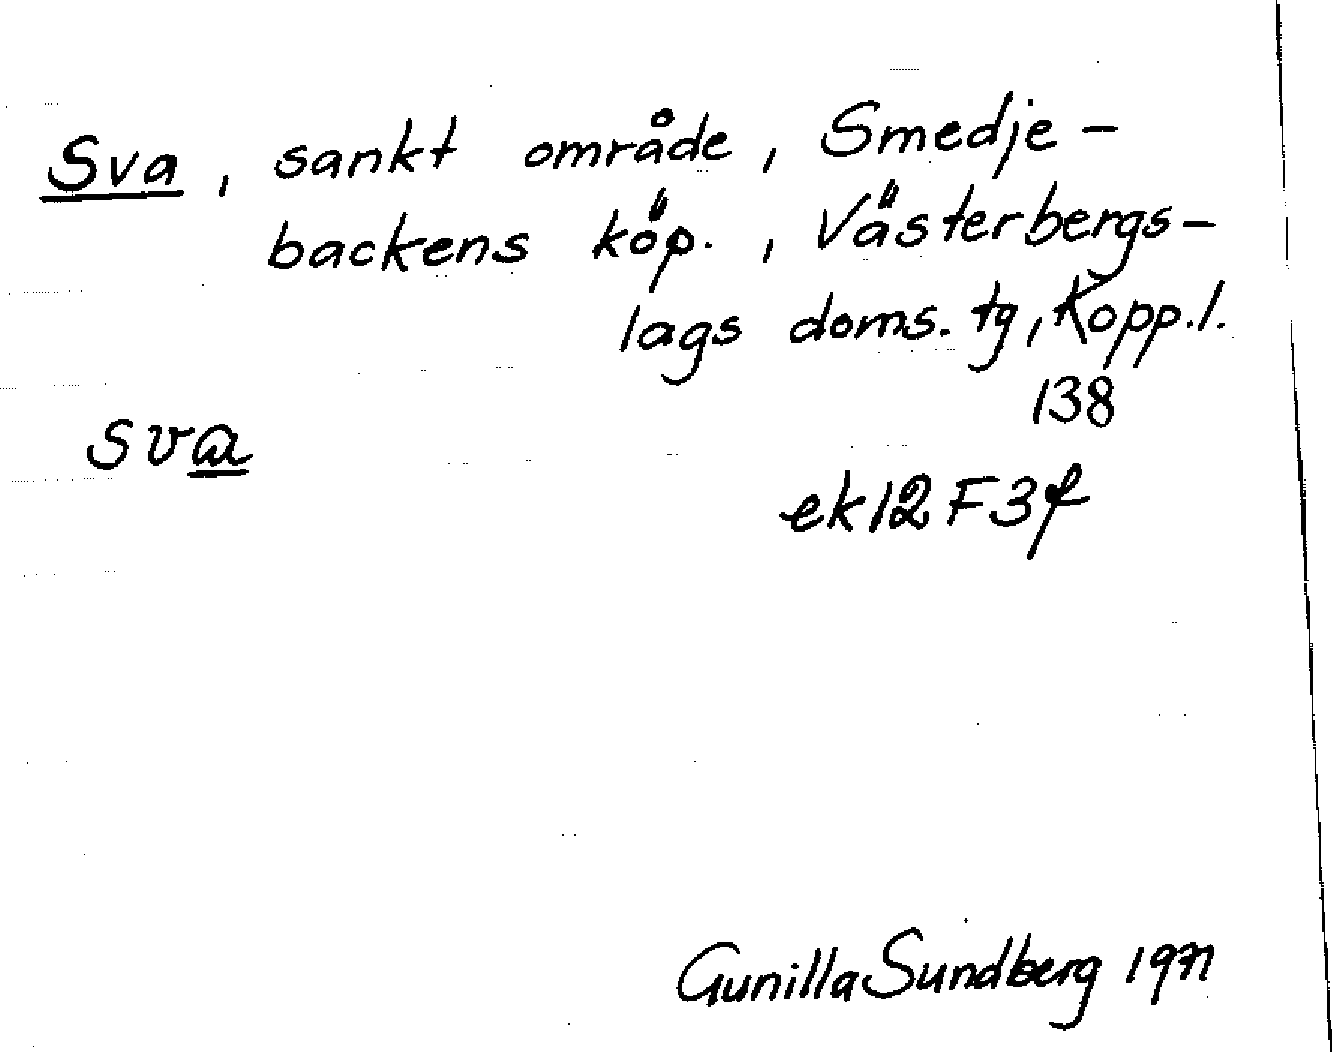 Sva, sankt område, Smedje-
backens köp., Västerbergs-
lags doms. tg, Kopp.l.
138
sva
ek 12 F 3 f
Gunilla Sundberg 1971